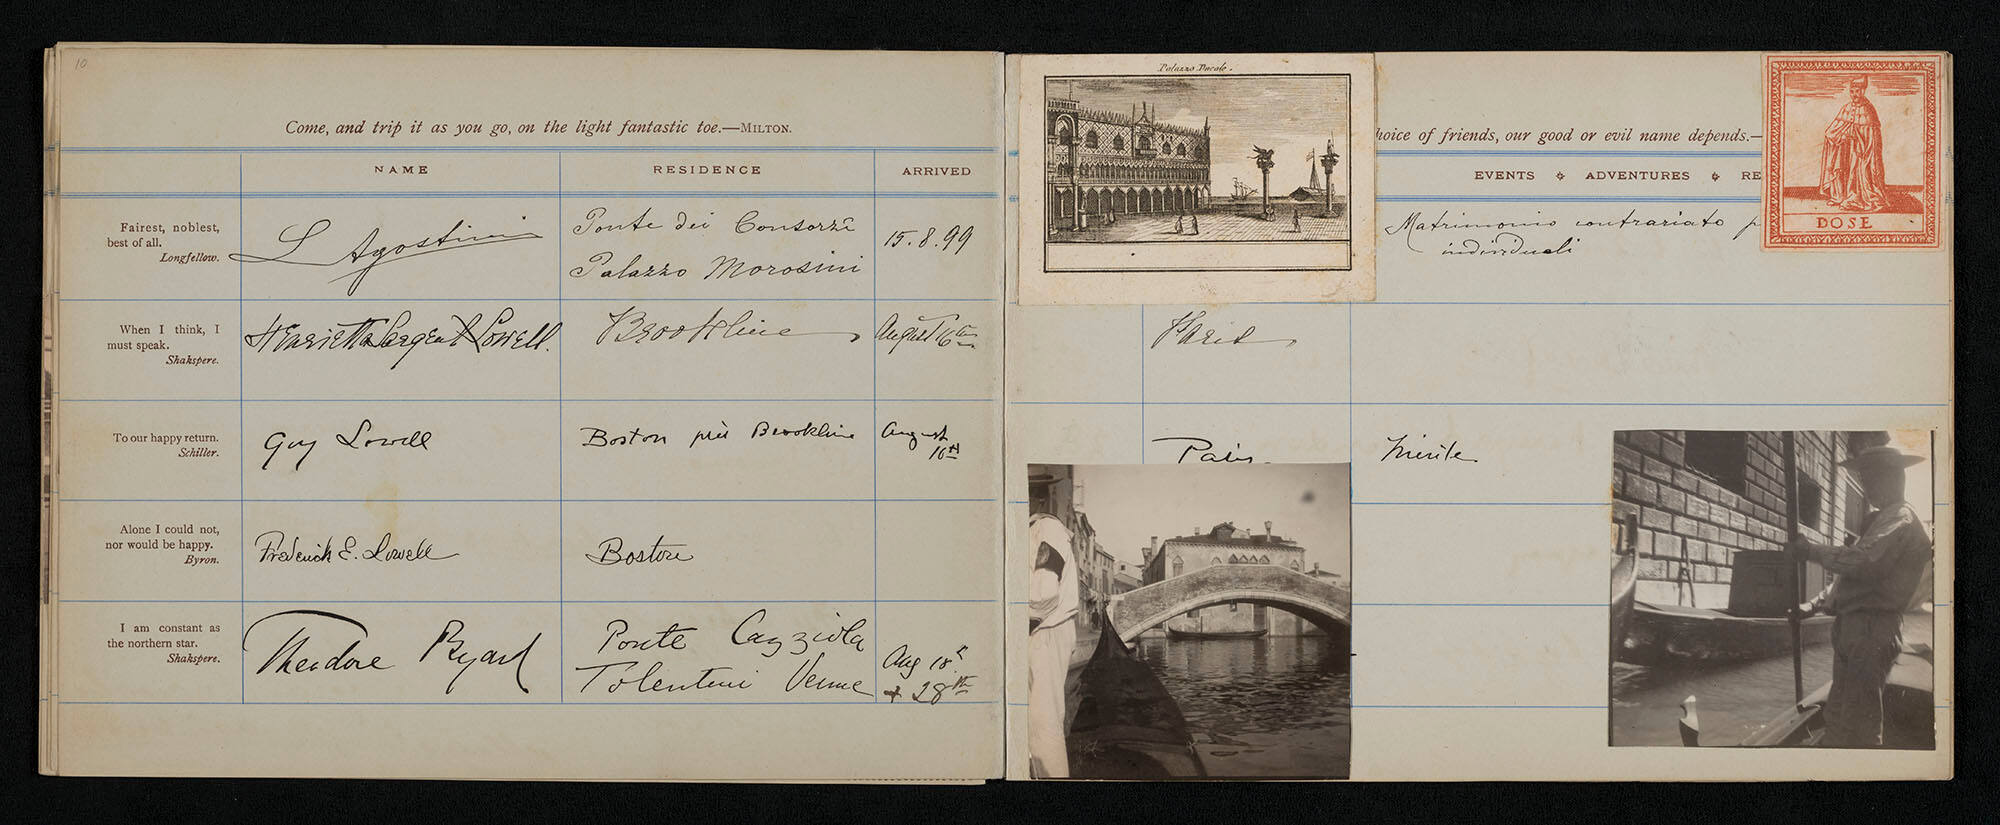 10
Come, and trip it as you go, on the light fantastic toe.—MILTON.
NAME RESIDENCE ARRIVED
Fairest, noblest,
best of all.
Longfellow.
L Agostini
Ponte dei Consorzi
Palazzo Morosini
15.8.99
When I think, I
must speak.
Shakspere.
Henrietta Sargent Lowell.
Brookline
August 16th
To our happy return.
Schiller.
Guy Lowell
Boston près Brookline
August
16th
Alone I could not,
nor would be happy.
Byron.
Frederick E. Lowell
Boston
I am constant as
the northern star.
Shakspere.
Theodore Byard
Ponte
Tolentini Venise
Aug 18th
+ 28th
Palazzo Ducale.
hoice of friends, our good or evil name depends.—
EVENTS ADVENTURES RE
DOSE
Matrimonio contrariato p
individuali
Paris
Paris